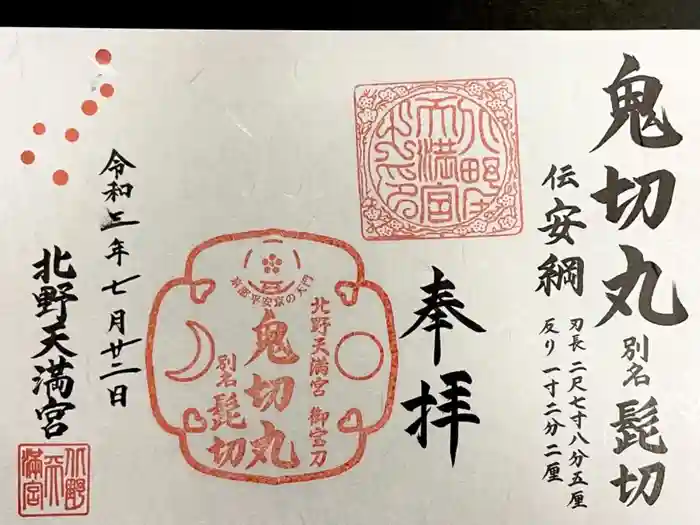 鬼切丸 別名 髭切
伝 安綱
刃長 二尺七寸八分五厘
反り 一寸二分二厘
奉拝
北野天満宮 御宝刀
鬼切丸
別名 髭切
令和三年七月廿二日
北野天満宮
北野
天
満宮